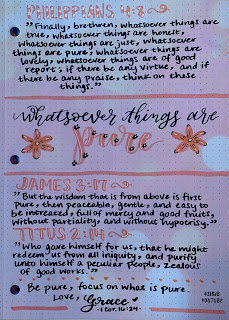 PHILIPPIANS 4:8
"Finally, brethren, whatsoever things are
true, whatsoever things are honest,
whatsoever things are just, whatsoever
things are pure, whatsoever things are
lovely, whatsoever things are of good
report; if there be any virtue, and if
there be any praise, think on these
things."
whatsoever things are
pure
JAMES 3:17
"But the wisdom that is from above is first
pure, then peaceable, gentle, and easy to
be intreated, full of mercy and good fruits,
without partiality and without hypocrisy."
TITUS 2:14
"Who gave himself for us, that he might
redeem us from all iniquity, and purify
unto himself a peculiar people, zealous
of good works."
Be pure, focus on what is pure.
Love, Grace
·1 Cor. 16:24·